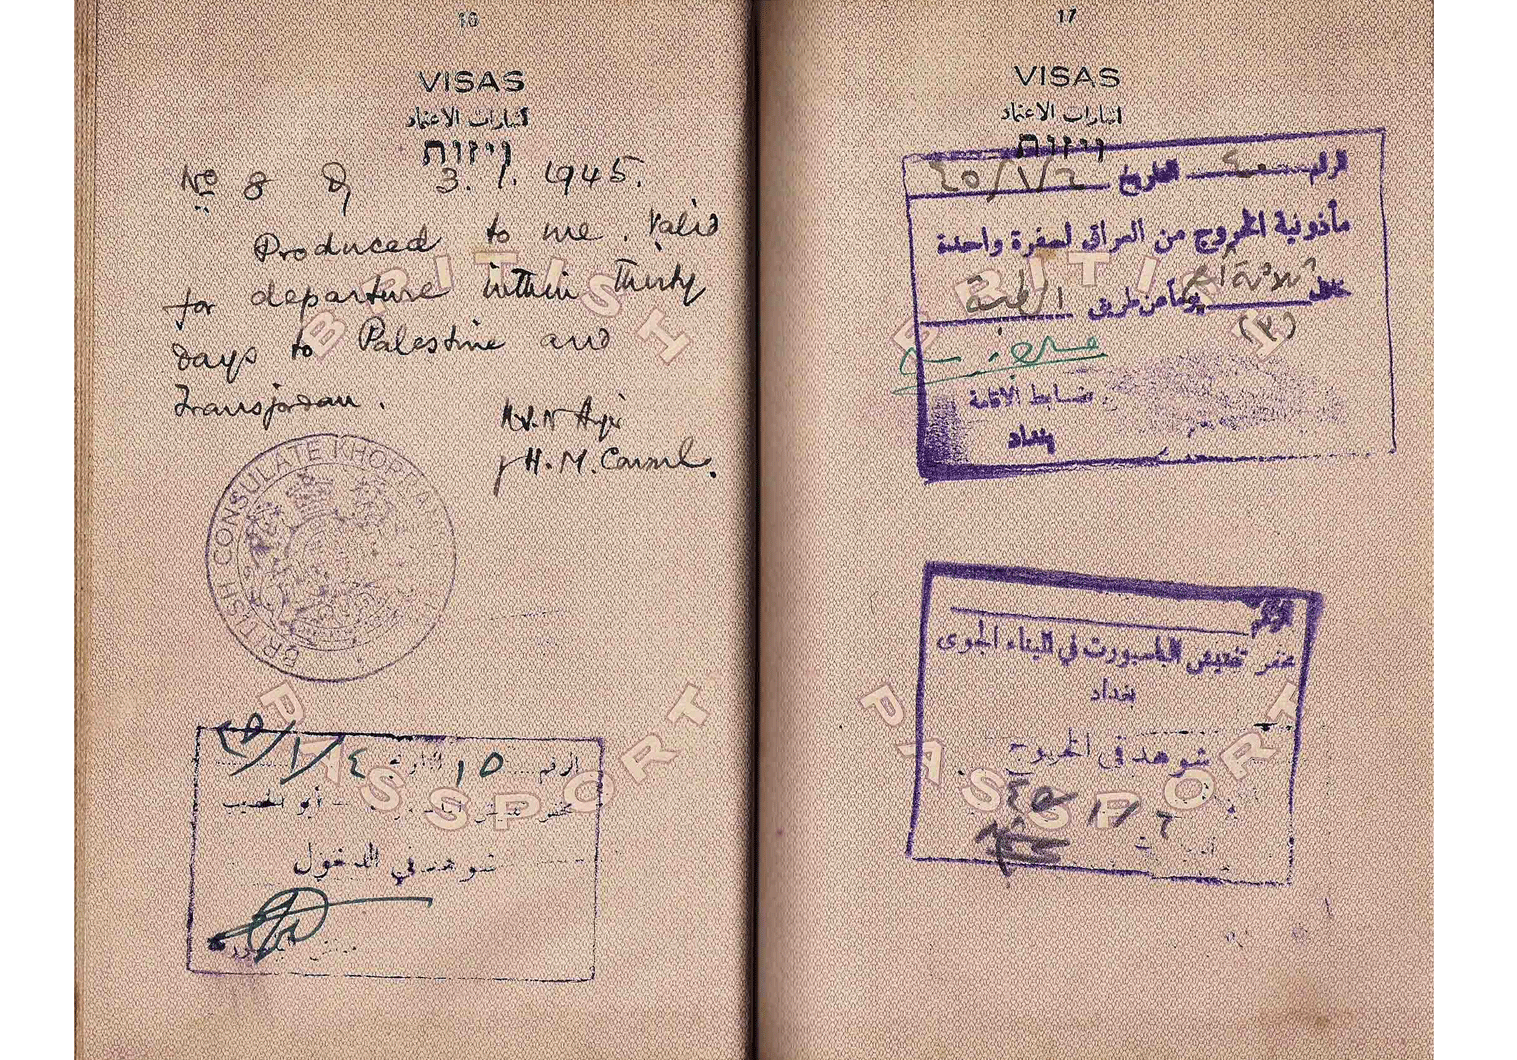 16
VISAS
اشارات الاعتماد
ויזות
No 8 of 3.1.1945.
Produced to me. Valid
for departure within thirty
days to Palestine and
Transjordan.
H.M. Consul.
BRITISH CONSULATE KHORRAM
BRITISH
PASSPORT
الرقم ١٥ التاريخ ٤/١/٤٥
أبو الخصيب
شوهد في الدخول
17
VISAS
اشارات الاعتماد
ויזות
الرقم ٤ التاريخ ٦/١/٤٥
مأذونية الخروج من العراق لسفرة واحدة
خلال ثلاثة أيام يوماً عن طريق الرطبة
(٣)
ضابط الاقامة
بغداد
BRITISH
الرقم
مخفر تفتيش الباسبورت في الميناء الجوي
بغداد
شوهد في الخروج
٦/١/٤٥
PASSPORT